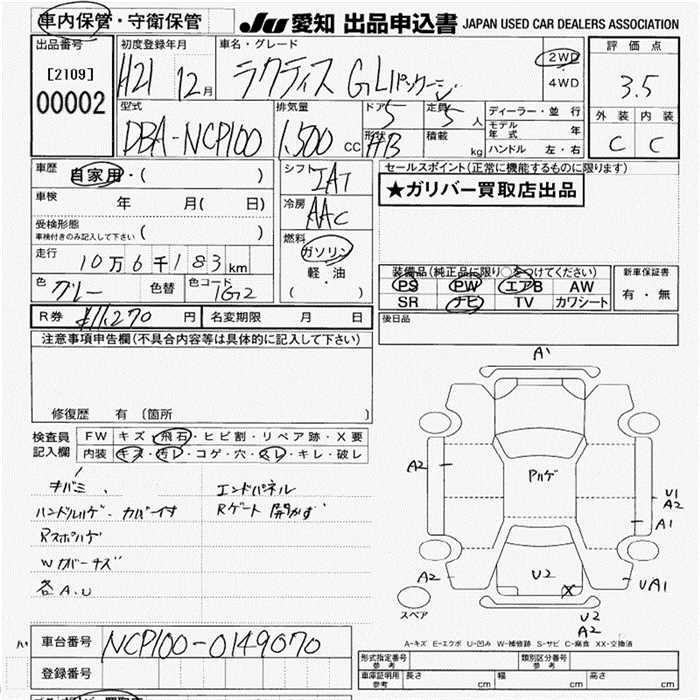 車内保管・守衛保管
JU 愛知 出品申込書 JAPAN USED CAR DEALERS ASSOCIATION
出品番号 初度登録年月 車名・グレード 評価点
[2109] H21 12月 ラクティス GLパッケージ 2WD ・ 4WD 3.5
00002
型式 排気量 ドア 5 定員 5人 ディーラー・並行 外装 内装
DBA-NCP100 1,500 CC 形状 HB 積載 kg モデル年式 年 C C
ハンドル 左・右
車歴 自家用・( ) シフト IAT セールスポイント(正常に機能するものに限ります)
★ガリバー買取店出品
車検 年 月( 日) 冷房 AAC
受検形態 車検付きのみ記入して下さい ( ) 燃料 ガソリン
走行 10万6千183km 軽・油
( )
装備品(純正品に限り○をつけてください) 新車保証書
PS PW エアB AW 有・無
SR ナビ TV カワシート
色 グレー 色替 色コード 1G2
R券 ¥11,270 円 名変期限 月 日 後日品
注意事項申告欄(不具合内容等は具体的に記入して下さい)
修復歴 有 〔箇所 〕
検査員記入欄 FW キズ・飛石・ヒビ割・リペア跡・X要
内装 キズ・汚レ・コゲ・穴・スレ・キレ・破レ
キバミ、 エンドパネル
ハンドルハゲ・カバイす Rゲート 開かず
Rスポハゲ
Wカバーキズ
各A.U
A1
A2
Pハゲ
U1
A2
A1
A2
U2
X
UA1
スペア
U2
A2
A-キズ E-エクボ U-凹み W-補修跡 S-サビ C-腐食 XX-交換済
車台番号 NCP100-0149070
登録番号
形式指定番号 参考 類別区分番号 参考
車庫証明用 参考 長さ cm 幅 cm 高さ cm